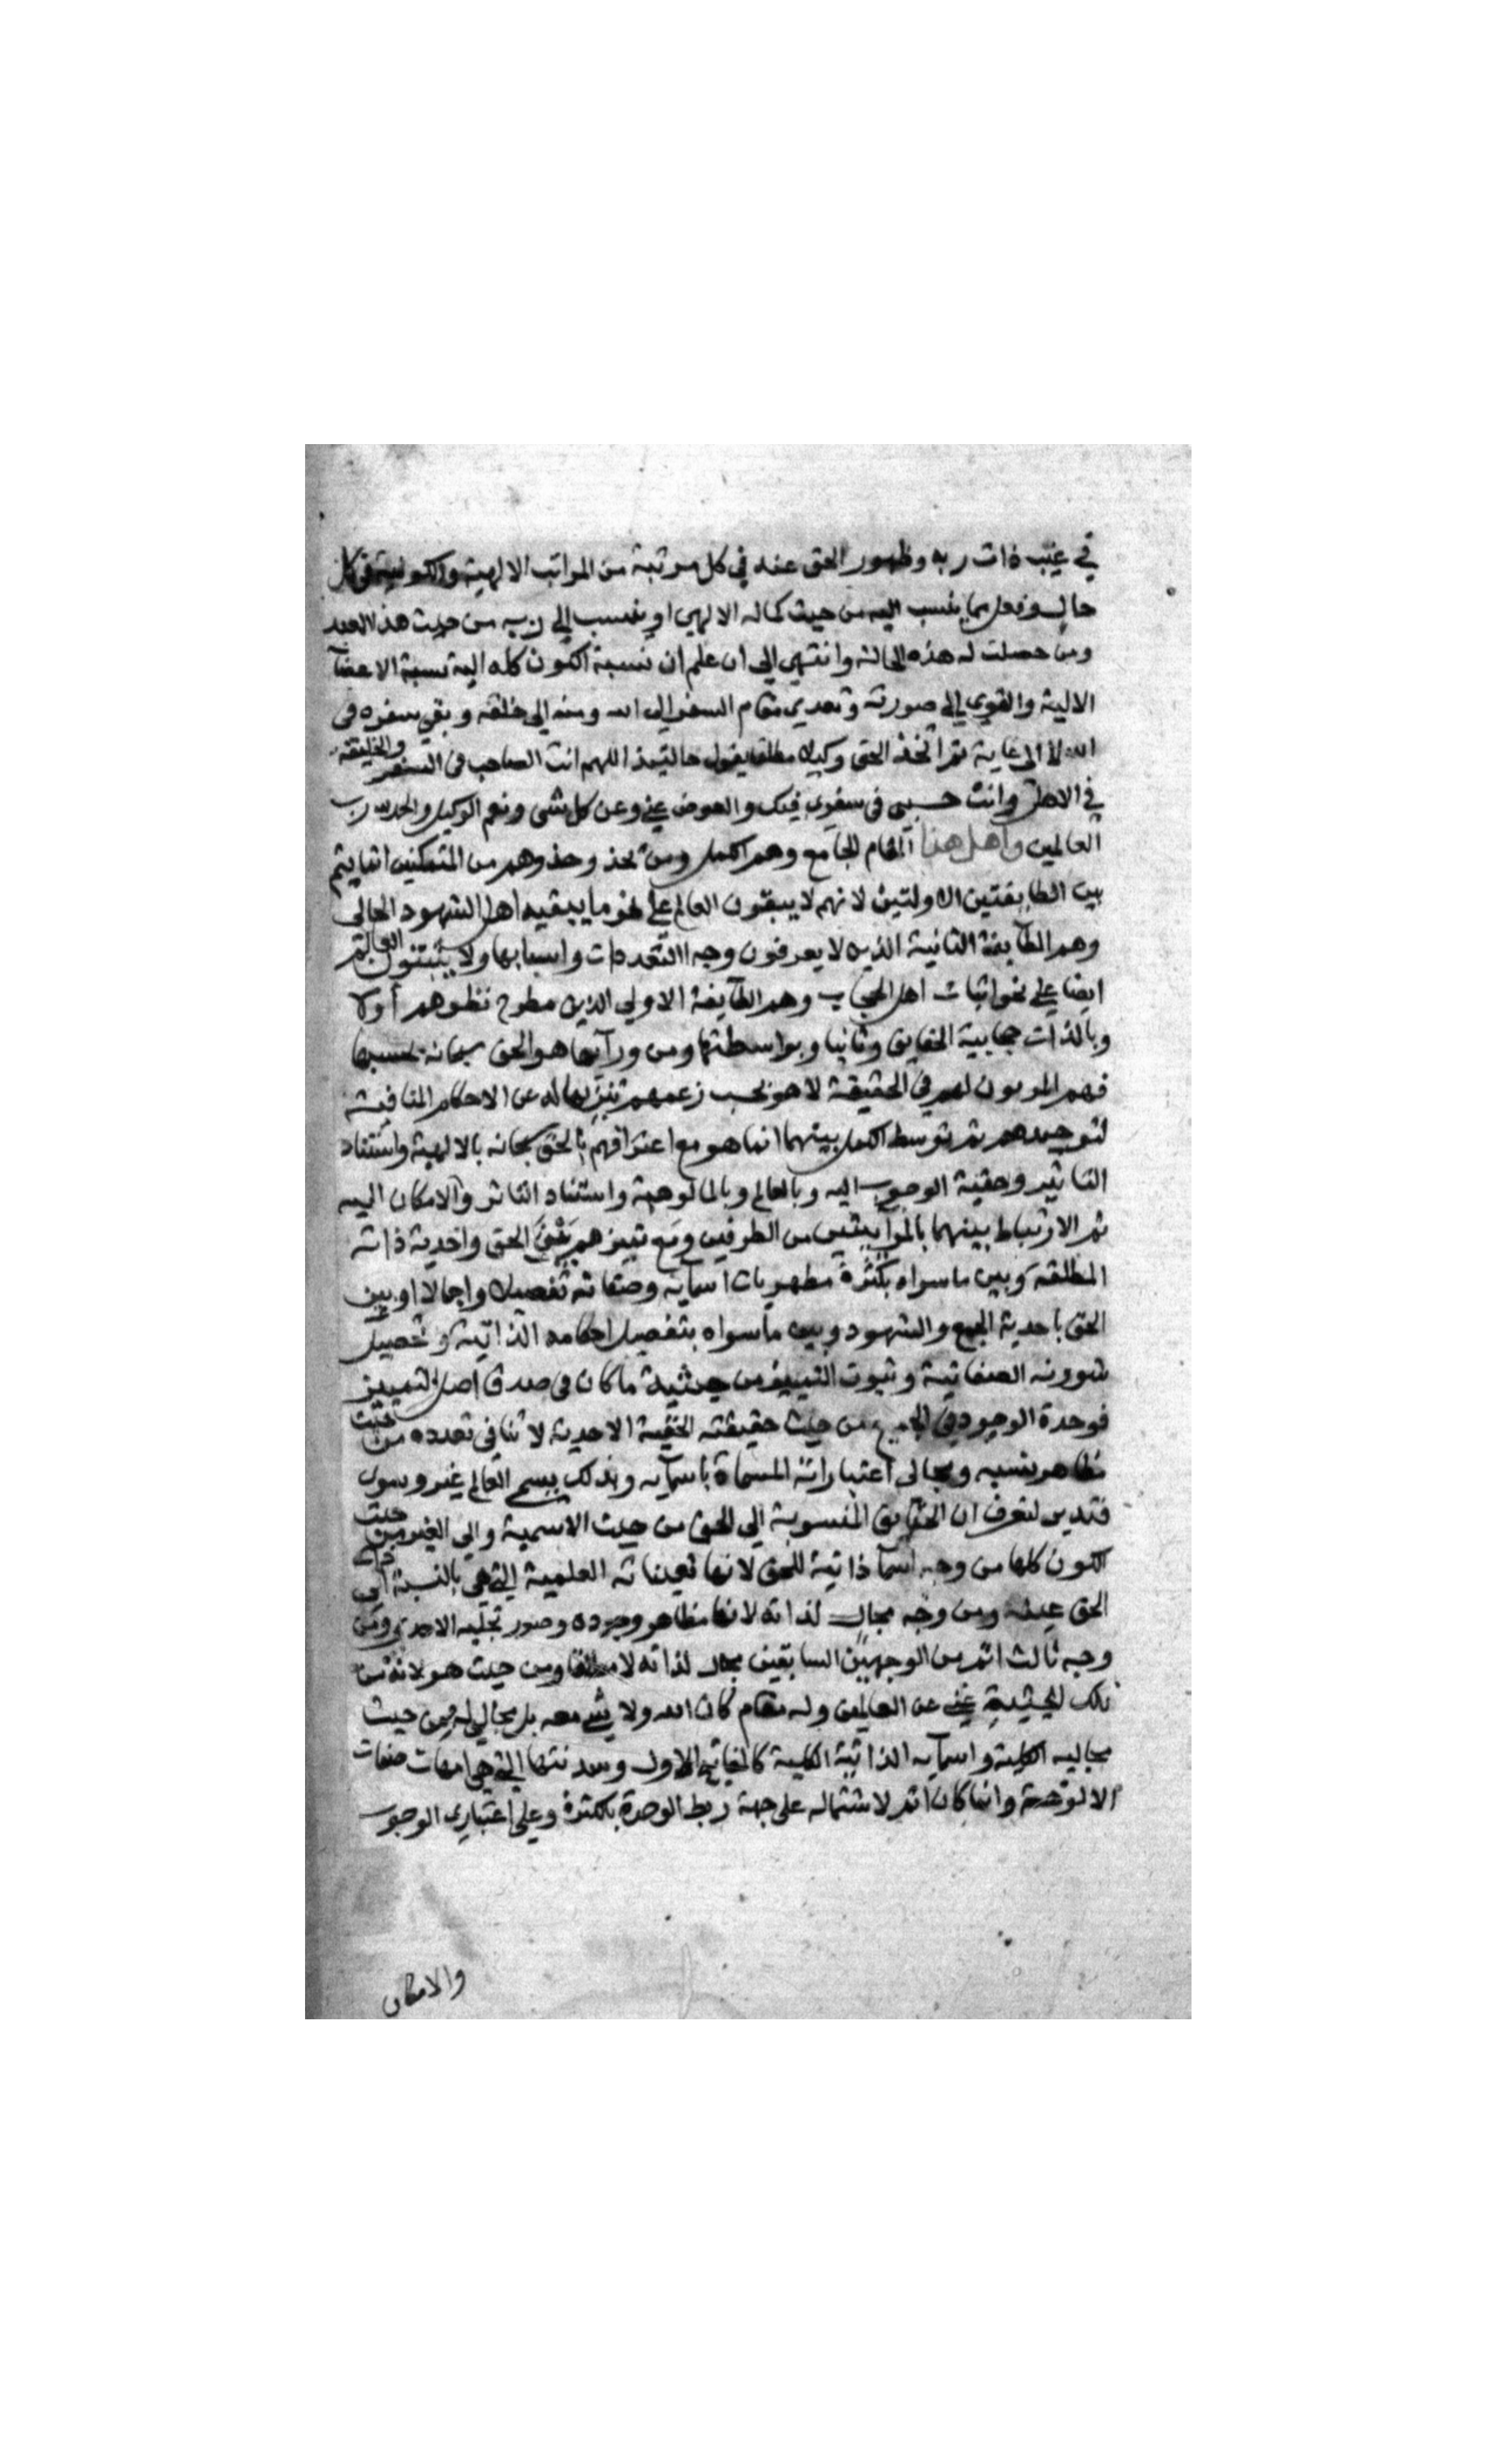 في غيب ذات ربه وظهور الحق عنه في كل مرتبة من المراتب الالهية والكونية وفي كل
حال وفعل مما ينسب اليه من حيث كماله الالهي او ينسب الى ربه من حيث هذا العبد
ومن حصلت له هذه الحالة وانتهى الى ان علم ان نسبة الكون كله اليه نسبة الاعضآ
الالية والقوى الى صورته وتعدى مقام السفر الى الله ومنه الى خلقه وبقي سفره في
الله لا الى غاية ثم اتخذ الحق وكيلا مطلقا يقول حالتيذ اللهم انت الصاحب في السفر والخليفة
في الاهل وانت حسبي في سفري فيك والعوض عني وعن كل شي ونعم الوكيل والحمد لله رب
العالمين واهل هذا المقام الجامع وهم الكمل ومن نحذ وحذوهم من المتمكنين اثباتهم
بين الطايفتين الاولتين لانهم لا يبقون العالم على نحو ما يبقيه اهل الشهود الحالي
وهم الطآيفة الثانية الذين لا يعرفون وجه التعددات واسبابها ولا يثبتون العالم
ايضا على نحو اثبات اهل الحجاب وهم الطآيفة الاولى الذين مطرح نظرهم أولا
وبالذات حجابية الحقايق وثانيا وبواسطتها ومن ورآيها هو الحق سبحانه بحسبها
فهم المربون لهم في الحقيقة لا هو بحسب زعمهم تنزيها له عن الاحكام المنافية
لتوحيدهم ثم توسط الكمل بينهما انما هو مع اعترافهم بالحق سبحانه بالالهية واستناد
التاثير وحقية الوجوب اليه وبالعالم وبالمالوهية واستناد التاثر والامكان اليه
ثم الارتباط بينهما بالمرآتيتين من الطرفين ومع تمييزهم بين غنى الحق واحدية ذاته
المطلقة وبين ما سواه بكثرة مظهريات اسمآيه وصفاته تفصيلا واجمالا او بين
الحق باحدية الجمع والشهود وبين ما سواه بتفصيل احكامه الذاتية وتحصيل
شوونه الصفاتية وثبوت التمييز من حيثية ما كان في صدق اصل التمييز
فوحدة الوجود في الجميع من حيث حقيقته الحقية الاحدية لا تنافي تعدده من حيث
مظاهر نسبه ومجالي اعتباراته المسماة باسمآيه وبذلك يسمى العالم غير وسوى
فتدبر لتعرف ان الحقايق المنسوبة الى الحق من حيث الاسمية والى الغير من حيث
الكون كلها من وجه اسمآ ذاتية للحق لانها تعيناته العلمية التي هي بالنسبة الى
الحق عينه ومن وجه مجال لذاته لانها مظاهر وجوده وصور تجليه الاحدي ومن
وجه ثالث اتم من الوجهين السابقين مجال لذاته لا مطلقا ومن حيث هو لانه من
تلك الحيثية غني عن العالمين وله مقام كان الله ولا شي معه بل مجالي له من حيث
مجاليه الكلية واسمآيه الذاتية الكلية كالمفاتيح الاول وسدنتها التي هي امهات صفات
الالوهية وانما كان اتم لاشتماله على جهة ربط الوحدة بالكثرة وعلى اعتباري الوجوب
والامكان